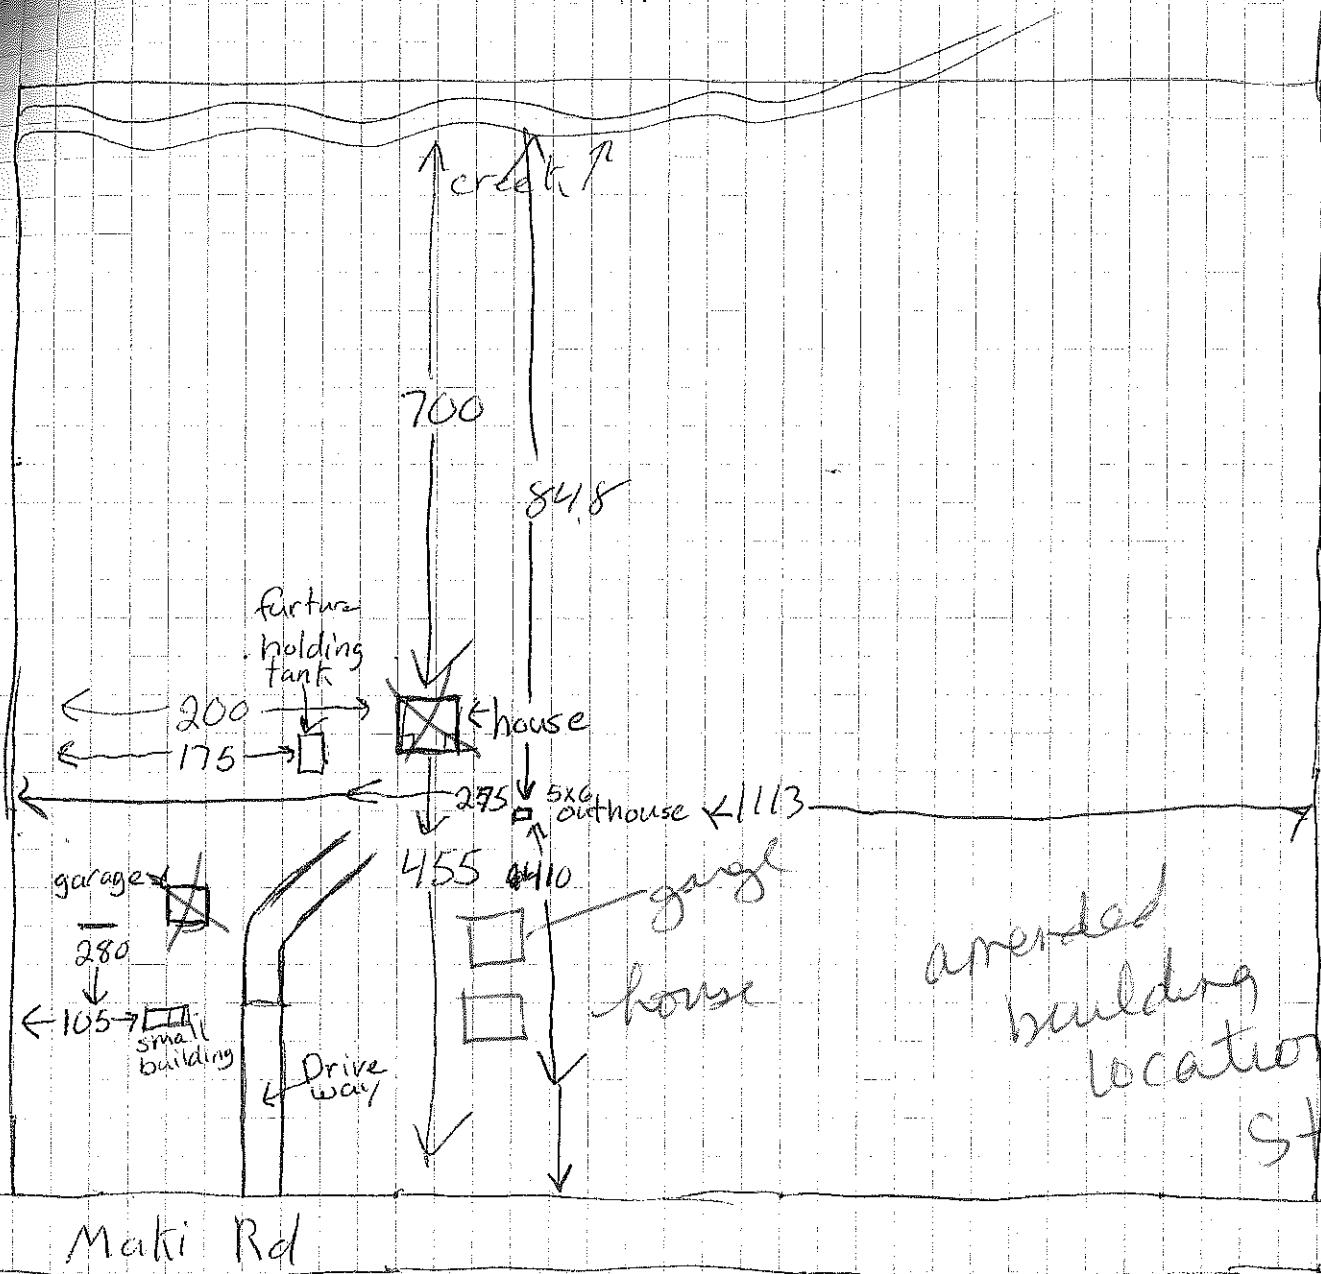 creek
700
848
furture
holding
tank
200
house
175
275
5x6
outhouse
1113
garage
455
410
garage
280
house
105
small
building
Drive
way
amended
building
location
St
Maki Rd